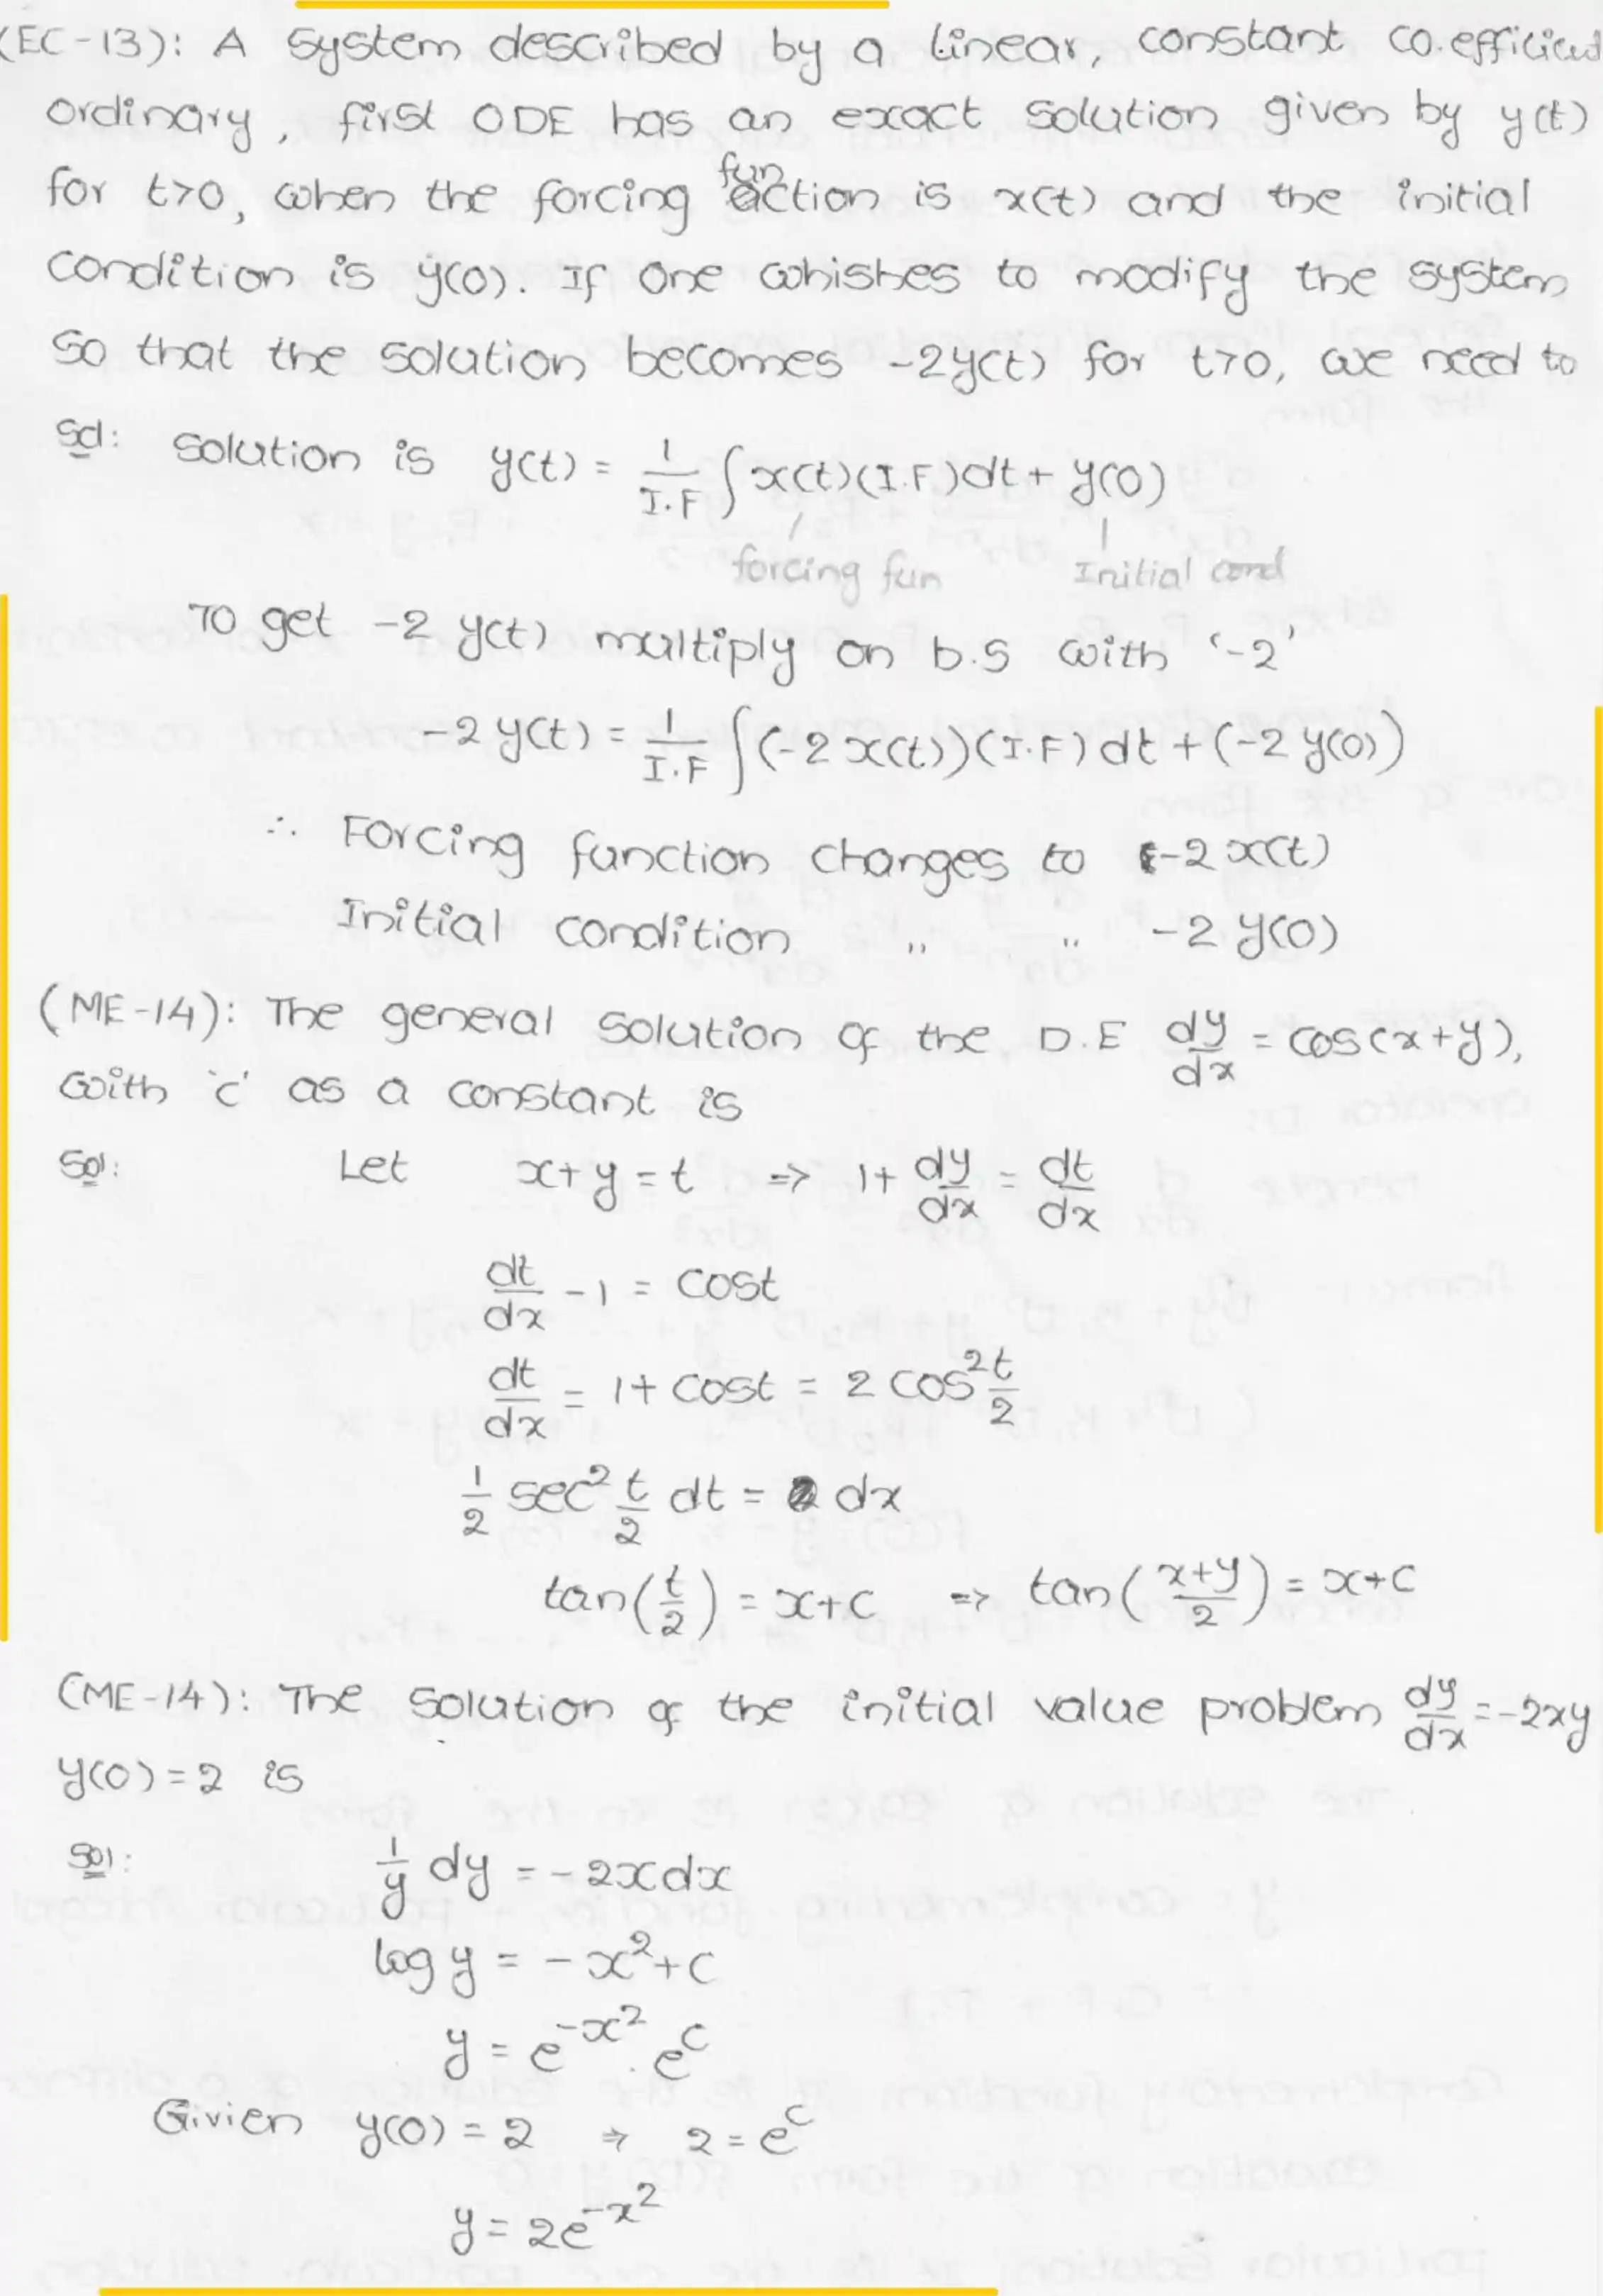 (EC-13): A System described by a linear, constant co.efficient
ordinary, first ODE has an exact solution given by y(t)
for t>0, when the forcing fun action is x(t) and the initial
condition is y(0). If one whishes to modify the system
so that the solution becomes -2y(t) for t>0, we need to
Sol: Solution is y(t) = 1/I.F ∫x(t)(I.F)dt + y(0)
forcing fun Initial cond
To get -2 y(t) multiply on b.s with '-2'
-2 y(t) = 1/I.F ∫(-2 x(t))(I.F) dt + (-2 y(0))
∴ Forcing function changes to -2 x(t)
Initial condition " " -2 y(0)
(ME-14): The general solution of the D.E dy/dx = cos(x+y),
with 'c' as a constant is
Sol: Let x+y = t => 1+ dy/dx = dt/dx
dt/dx - 1 = cost
dt/dx = 1+ cost = 2 cos² t/2
1/2 sec² t/2 dt = dx
tan(t/2) = x+c => tan(x+y/2) = x+c
(ME-14): The solution of the initial value problem dy/dx = -2xy
y(0) = 2 is
Sol: 1/y dy = -2xdx
log y = -x²+c
y = e^-x² . e^c
Givien y(0) = 2 => 2 = e^c
y = 2e^-x²